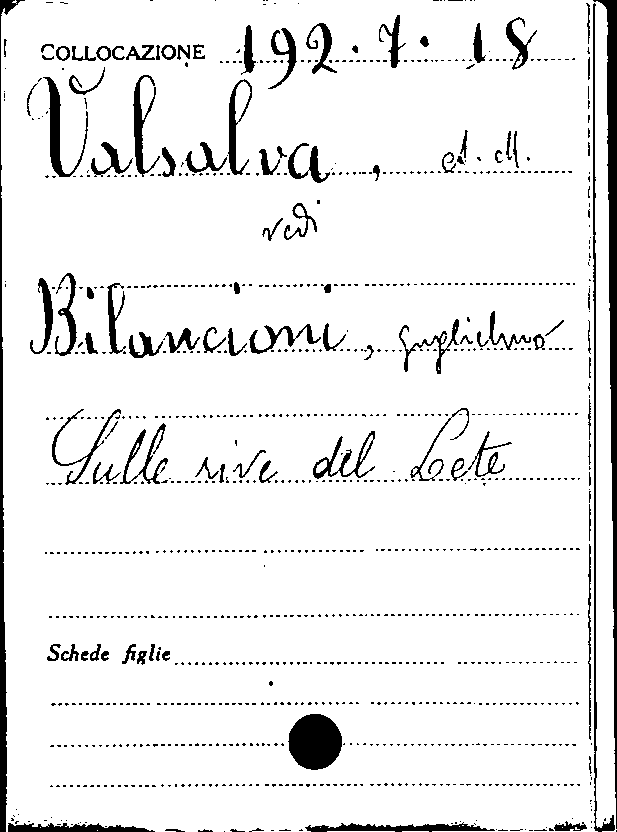 COLLOCAZIONE 192.7.18
Valsalva, A. M.
vedi
Bilancioni, Guglielmo
Sulle rive del Lete
Schede figlie